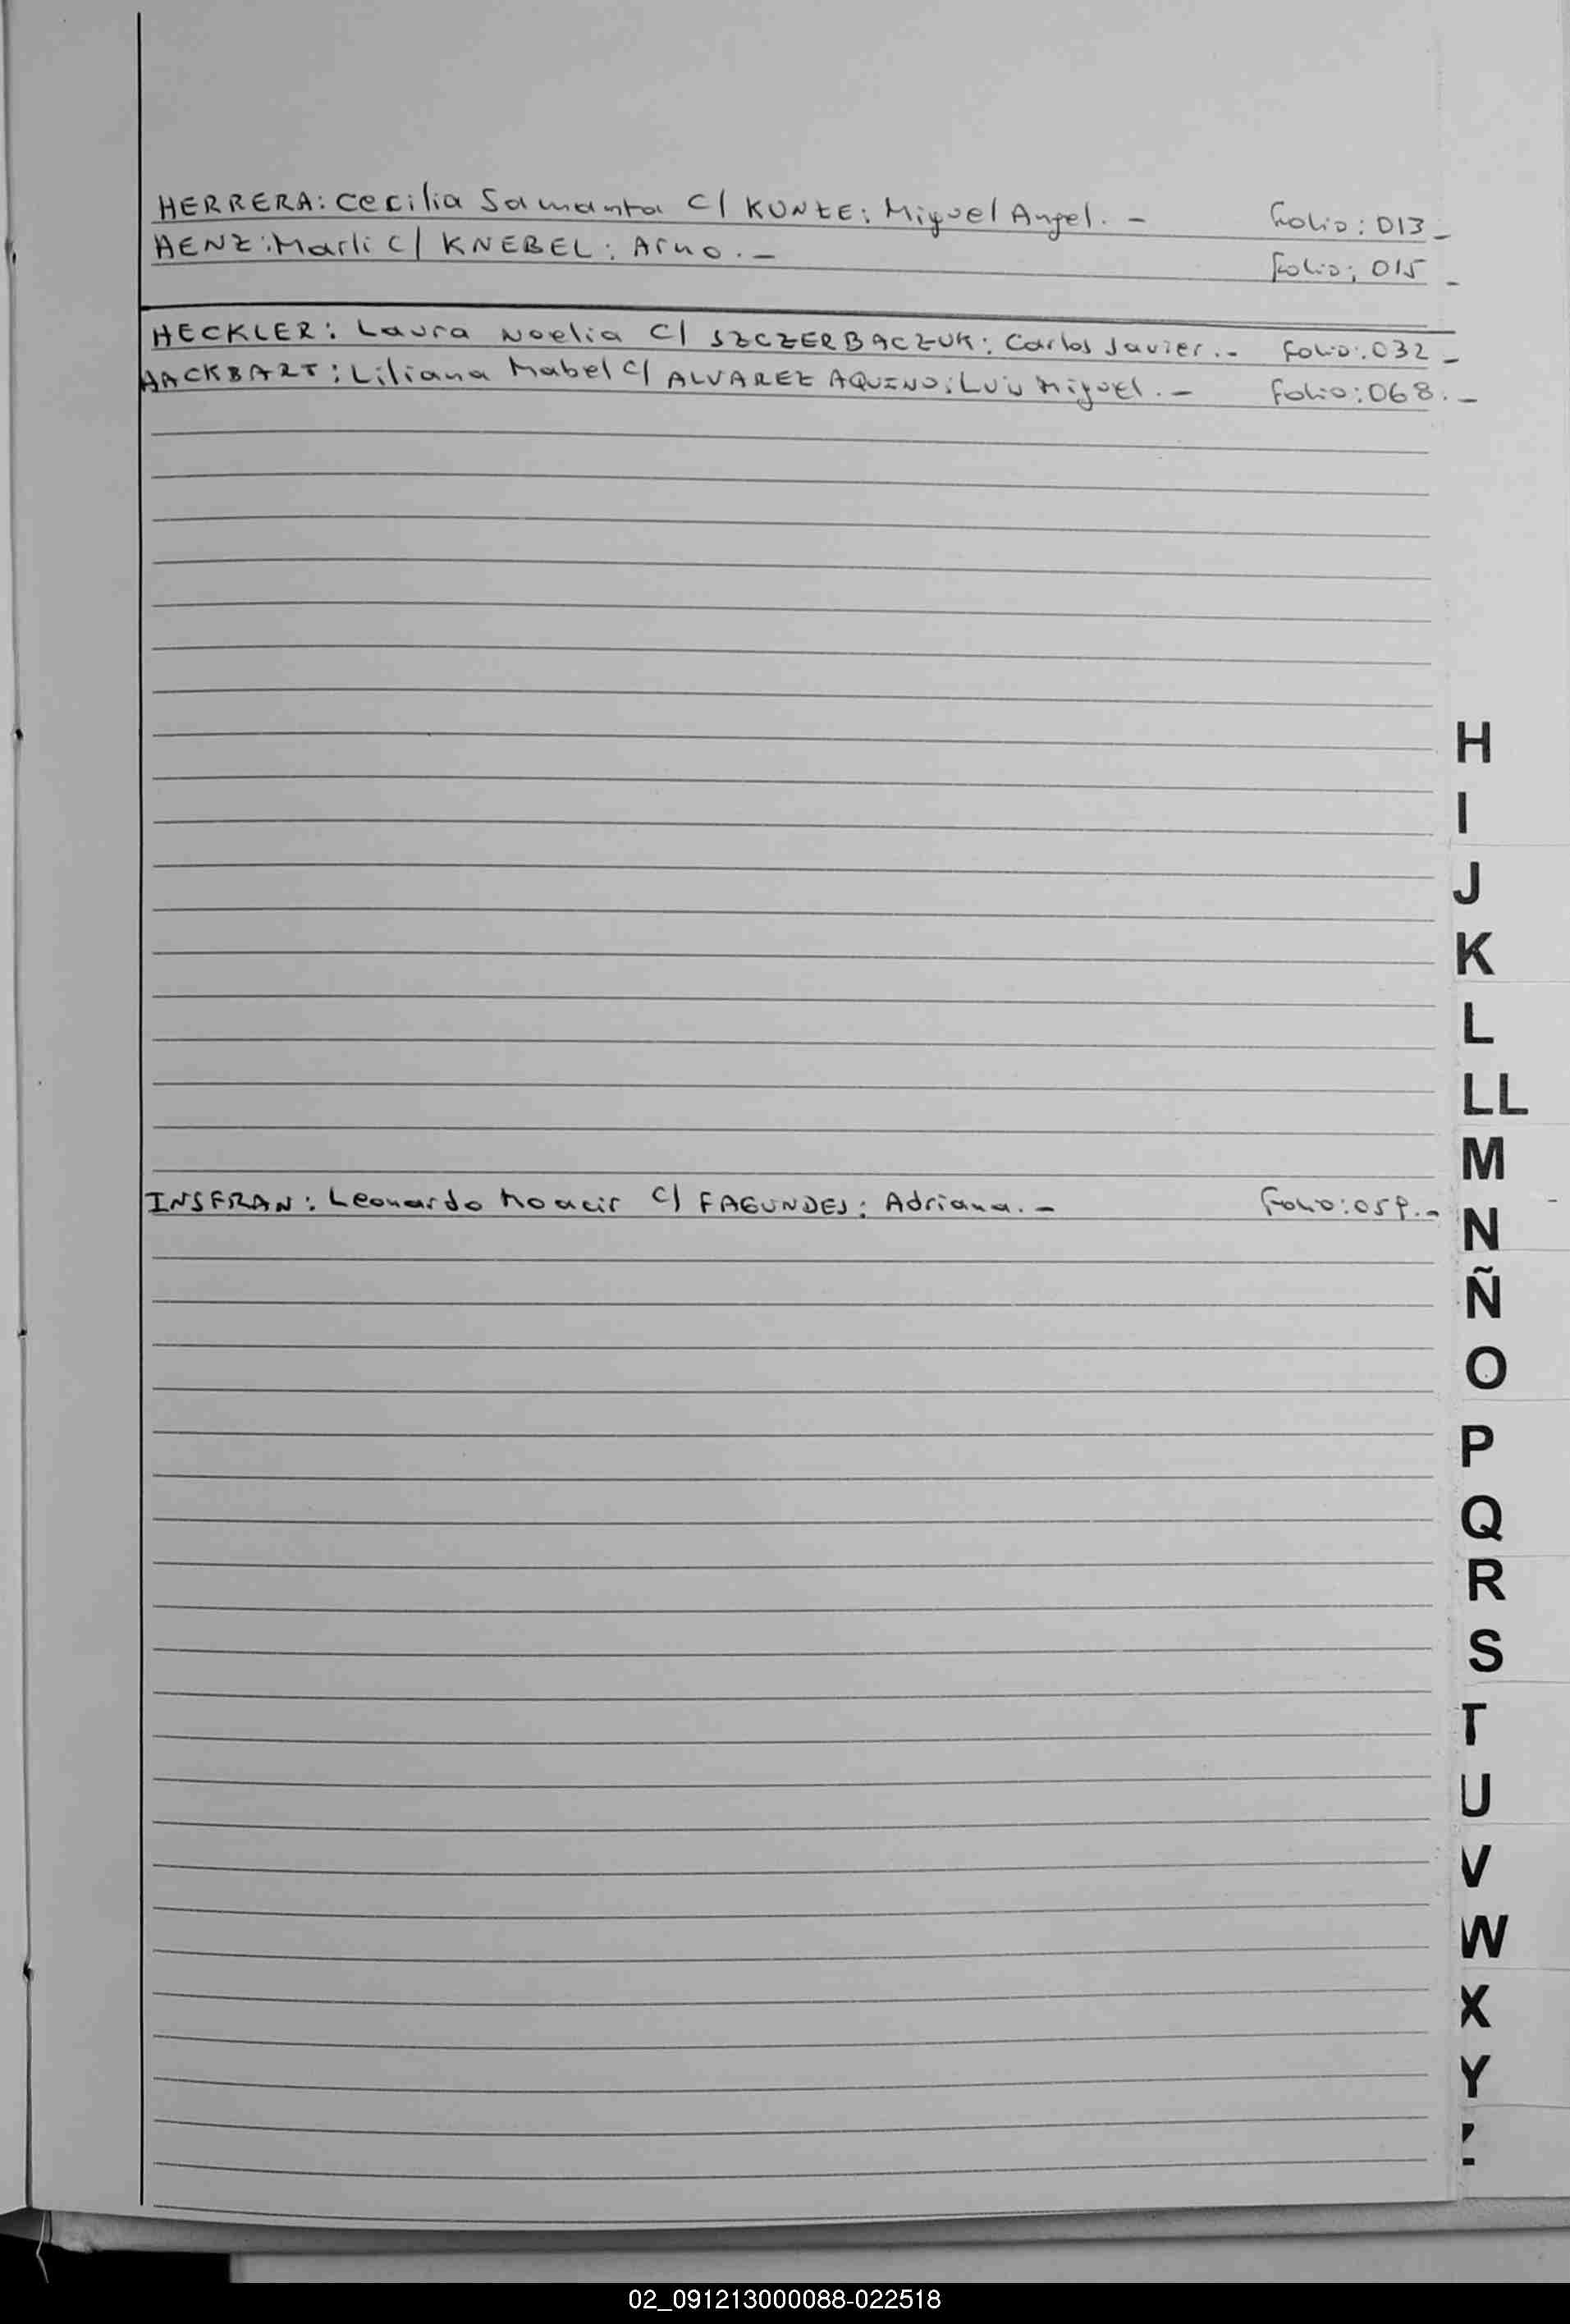 HERRERA: Cecilia Samanta C/ KUNZE: Miguel Angel. - Folio: 013 -
HENZ: Marli C/ KNEBEL: Arno. - Folio: 015 -
HECKLER: Laura Noelia C/ SZCZERBACZUK: Carlos Javier. - Folio: 032 -
HACKBART: Liliana Mabel C/ ALVAREZ AQUINO: Luis Miguel. - Folio: 068. -
H
I
J
K
L
LL
M
INSFRAN: Leonardo Moacir C/ FAGUNDES: Adriana. - Folio:
N
Ñ
O
P
Q
R
S
T
U
V
W
X
Y
Z
02_091213000088-022518